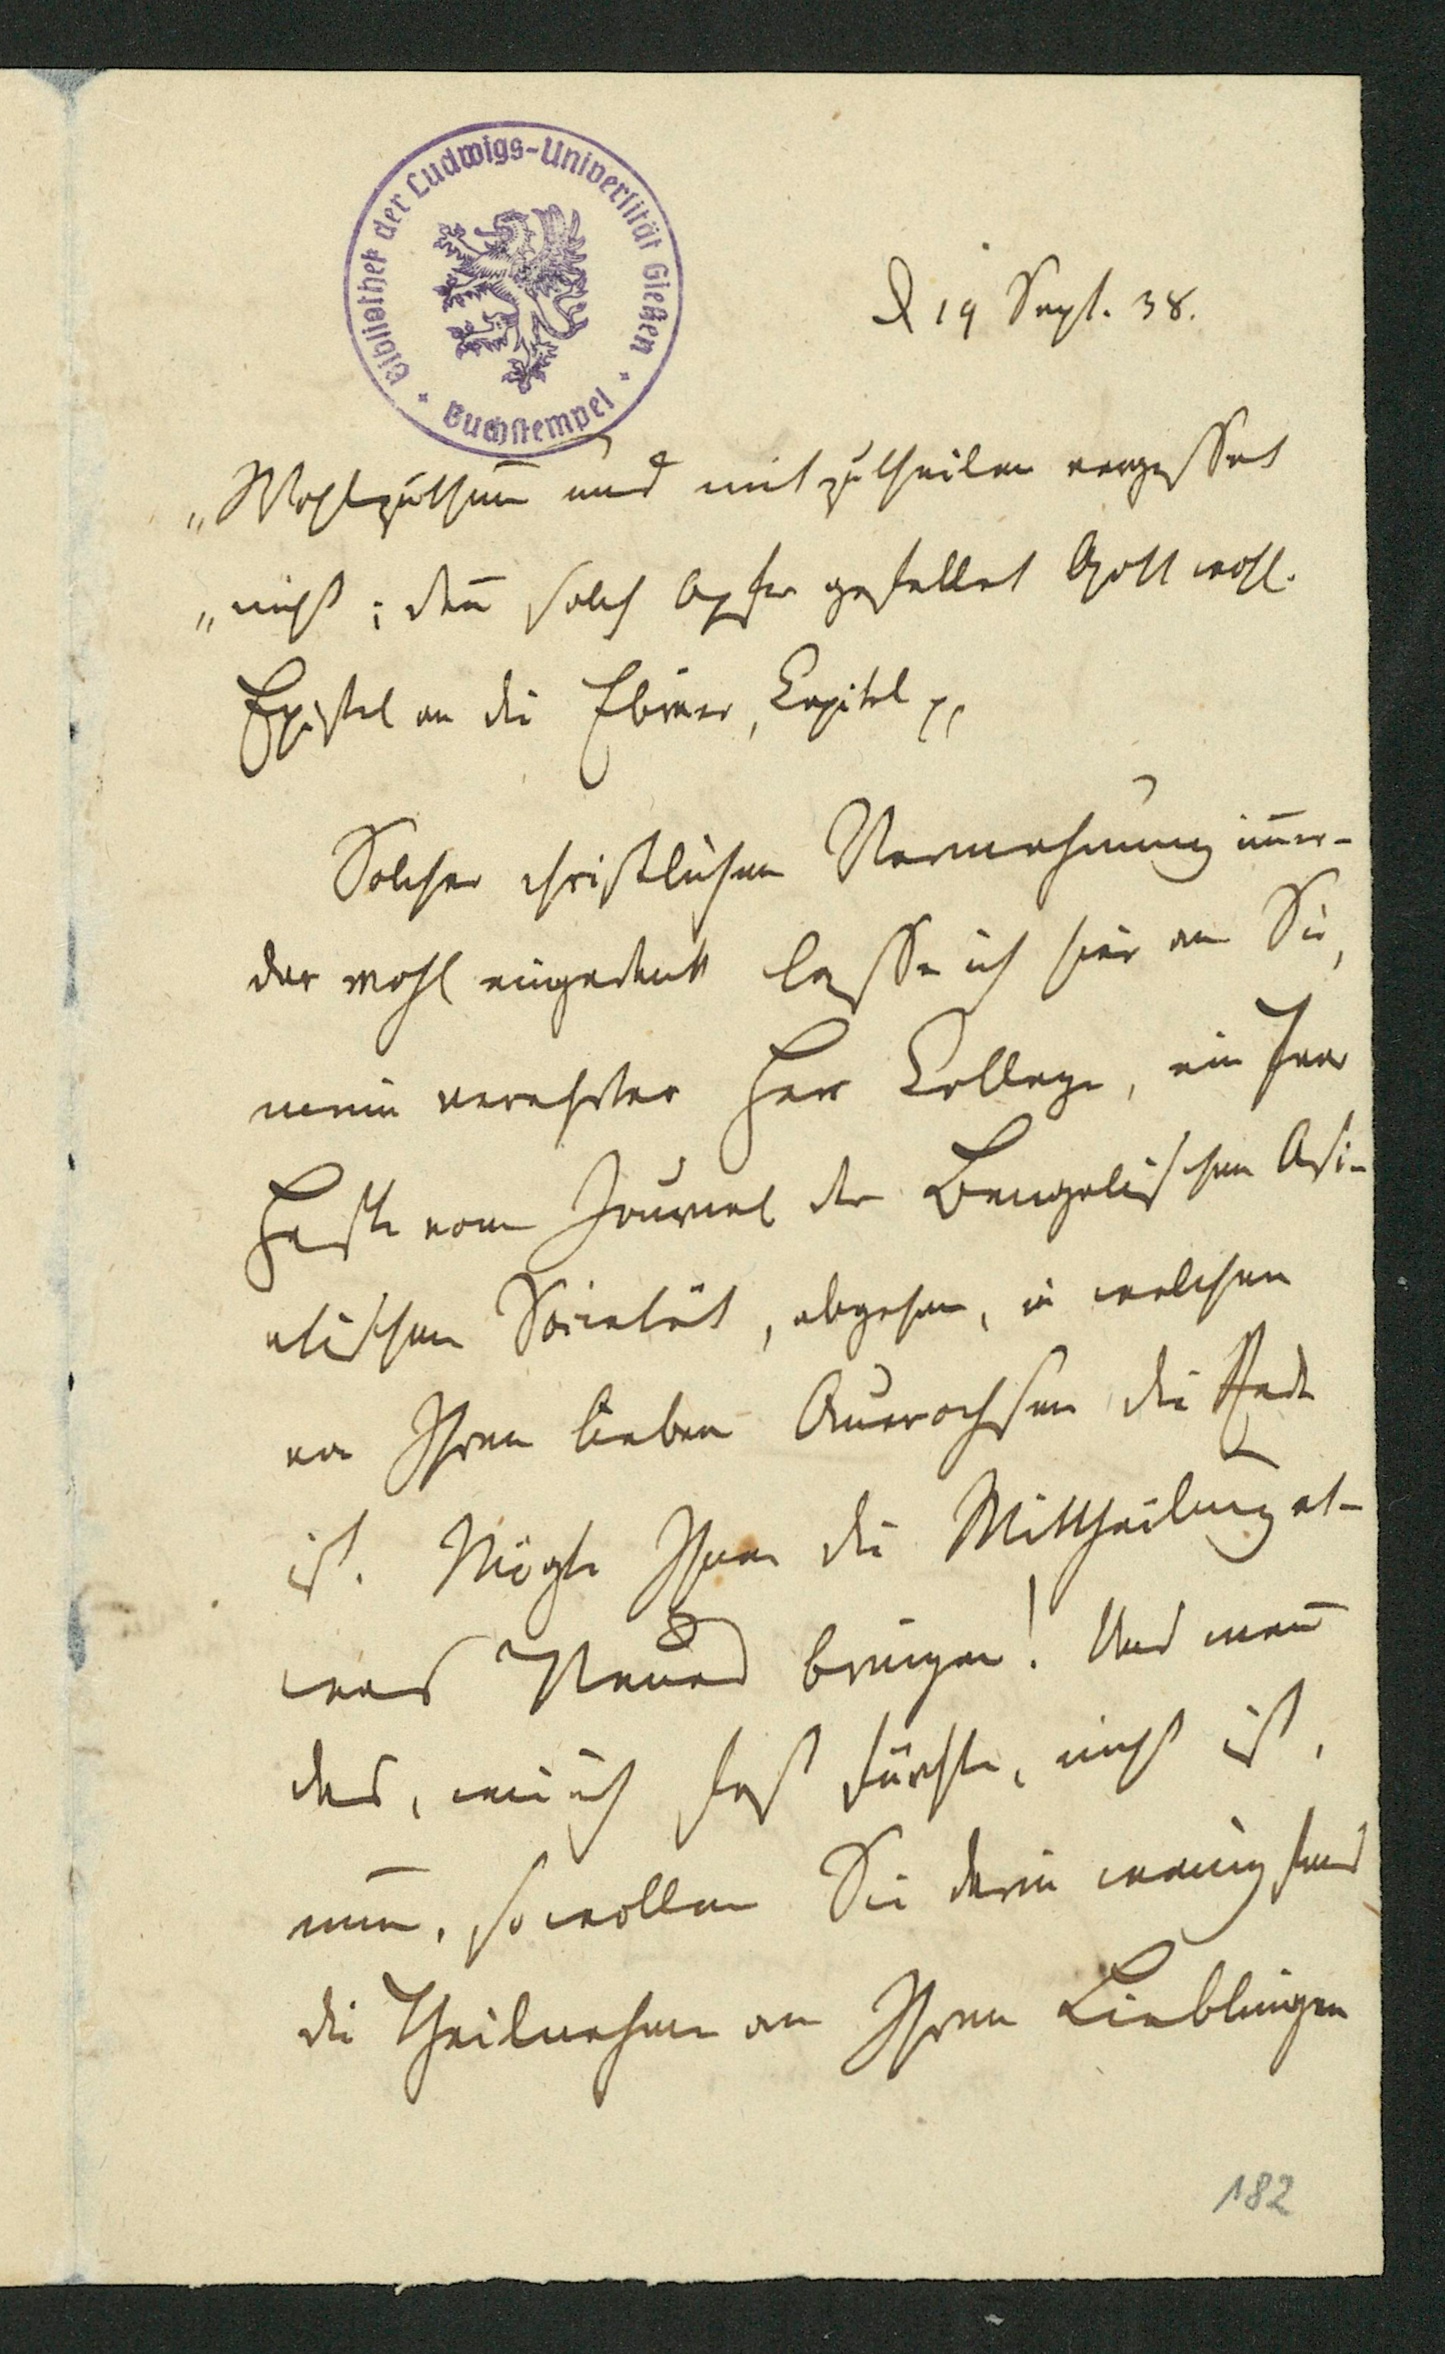 Bibliothek der Ludwigs-Universität Gießen
Buchstempel
D 19 Sept. 38.
„Wohlzuthun und mitzutheilen vergesset
„nicht; den̄ solch Opfer gefallet Gott wohl.
Epistel an die Ebräer, Capitel
Solcher christlichen Vermahnung im̄er-
dar wohl eingedenk lasse ich hier an Sie,
mein verehrter Herr College, ein Paar
Hefte vom Journal der Bengalischen Asi-
atischen Societät, abgehen, in welchen
von Ihren lieben Auerochsen die Rede
ist. Mögte Ihnen die Mittheilung et-
was Neues bringen! Und wen̄
das, wie ich fast fürchte, nicht ist,
nun, so wollen Sie darin wenigstens
die Theilnahme an Ihren Lieblingen
182